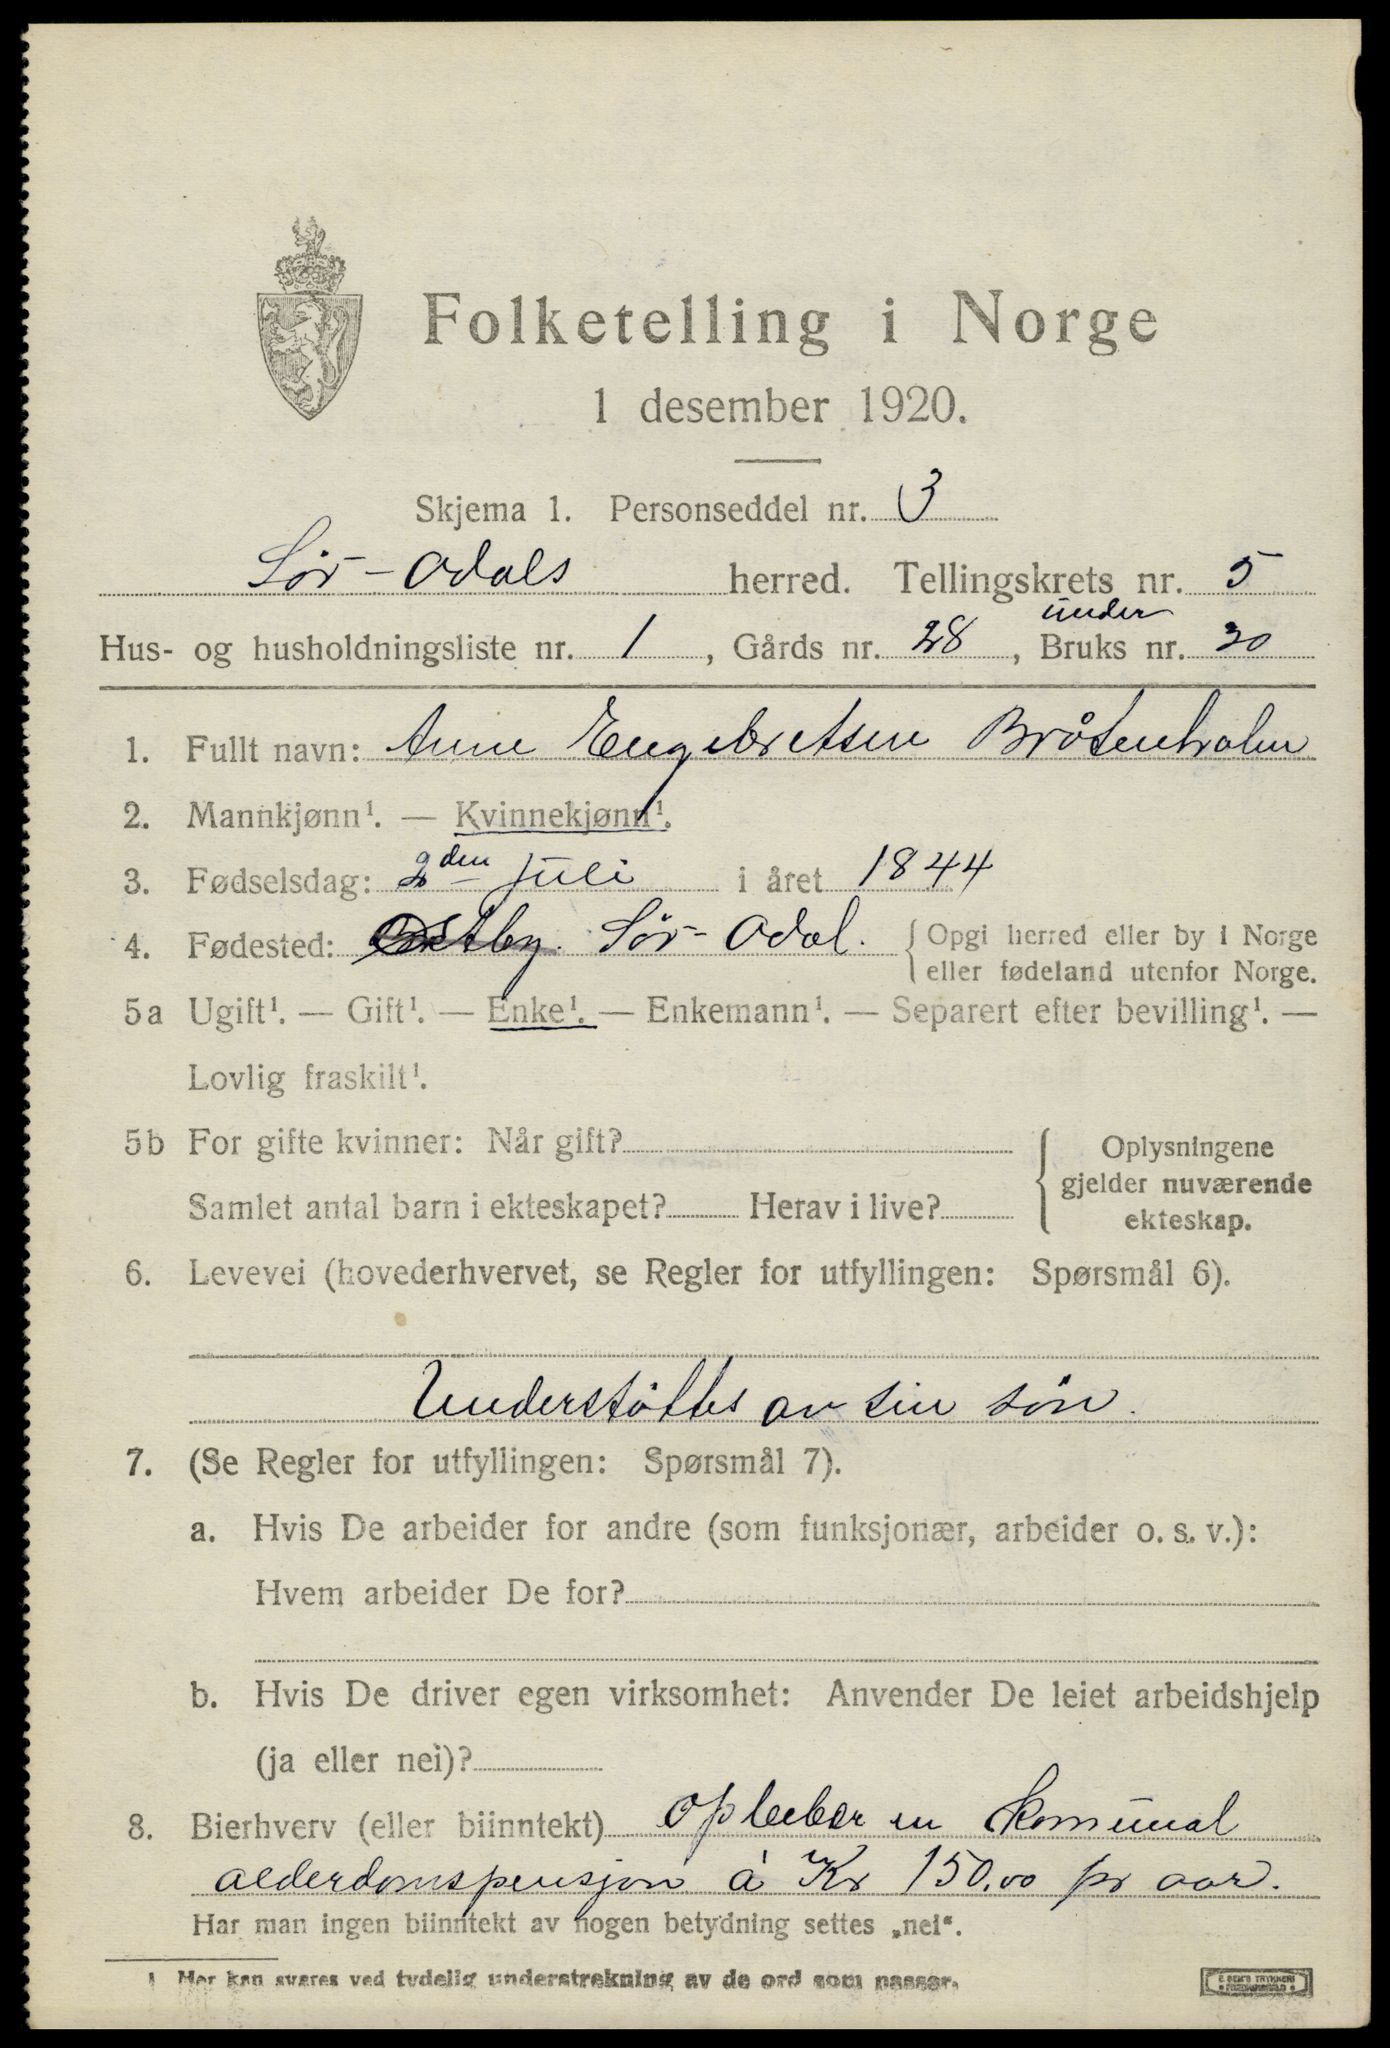 Folketelling i Norge
1 desember 1920.
Skjema 1. Personseddel nr. 3
Sör-Odals herred. Tellingskrets nr. 5
under
Hus- og husholdningsliste nr. 1, Gårds nr. 28, Bruks nr. 20
1. Fullt navn: Anne Engebretsen Bråtenholm
2. Mannkjønn¹. — Kvinnekjønn¹.
3. Fødselsdag: 2den juli i året 1844
4. Fødested: Sör-Odal. Opgi herred eller by i Norge
eller fødeland utenfor Norge.
5a Ugift¹. — Gift¹. — Enke¹. — Enkemann¹. — Separert efter bevilling¹. —
Lovlig fraskilt¹.
5b For gifte kvinner: Når gift? Oplysningene
gjelder nuværende
Samlet antal barn i ekteskapet? Herav i live? ekteskap.
6. Levevei (hovederhvervet, se Regler for utfyllingen: Spørsmål 6).
Understöttes av sin sön.
7. (Se Regler for utfyllingen: Spørsmål 7).
a. Hvis De arbeider for andre (som funksjonær, arbeider o. s. v.):
Hvem arbeider De for?
b. Hvis De driver egen virksomhet: Anvender De leiet arbeidshjelp
(ja eller nei)?
8. Bierhverv (eller biinntekt) en komunal
alderdomspensjon á Kr 150.00 pr aar.
Har man ingen biinntekt av nogen betydning settes „nei“.
1 Her kan svares ved tydelig understrekning av de ord som passer.